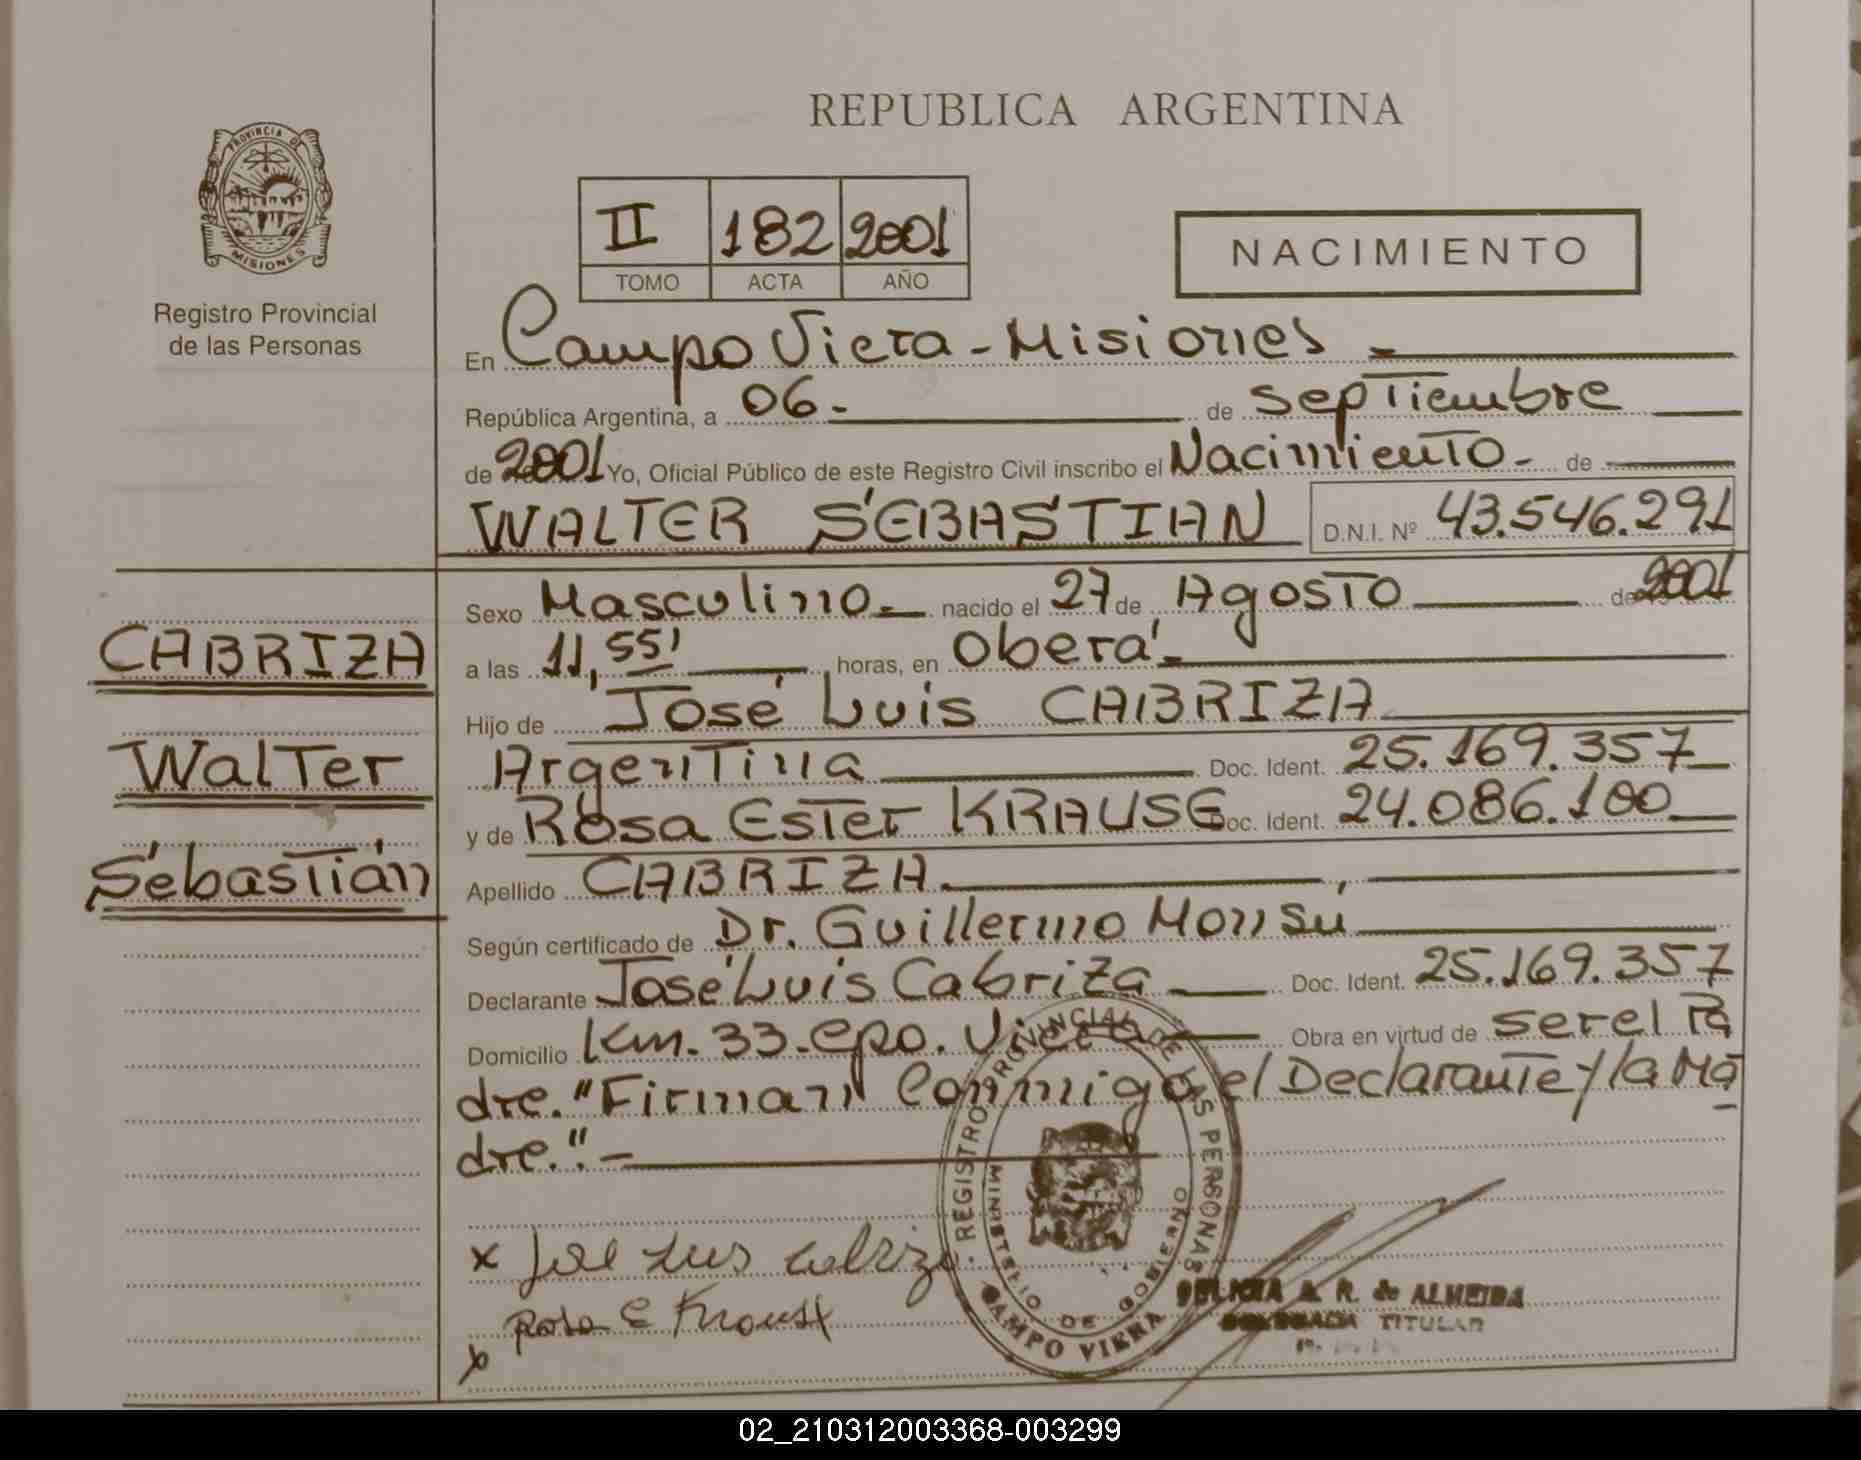 REPUBLICA ARGENTINA
PROVINCIA DE MISIONES
Registro Provincial
de las Personas
II 182 2001
TOMO ACTA AÑO
NACIMIENTO
En Campo Viera - Misiones -
República Argentina, a 06 - de septiembre
de 2001 Yo, Oficial Público de este Registro Civil inscribo el Nacimiento - de
WALTER SEBASTIAN D.N.I. Nº 43.546.291
Sexo Masculino nacido el 27 de Agosto de 2001
CABRIZA
a las 11,55' horas, en Oberá -
Hijo de José Luis CABRIZA
Walter
Argentina Doc. Ident. 25.169.357
y de Rosa Ester KRAUSE Doc. Ident. 24.086.100
Sebastián
Apellido CABRIZA ,
Según certificado de Dr. Guillermo Monsu
Declarante José Luis Cabriza Doc. Ident. 25.169.357
Domicilio Km. 33. Cpo. Viera Obra en virtud de ser el Pa
dre. "Firman Conmigo el Declarante y la Ma
dre." -
REGISTRO PROVINCIAL DE LAS PERSONAS
MINISTERIO DE GOBIERNO
CAMPO VIERA
x Jose Luis Cabriza
x Rosa E Krause
FELICIA A. R. de ALMEIDA
DELEGADA TITULAR
02_210312003368-003299